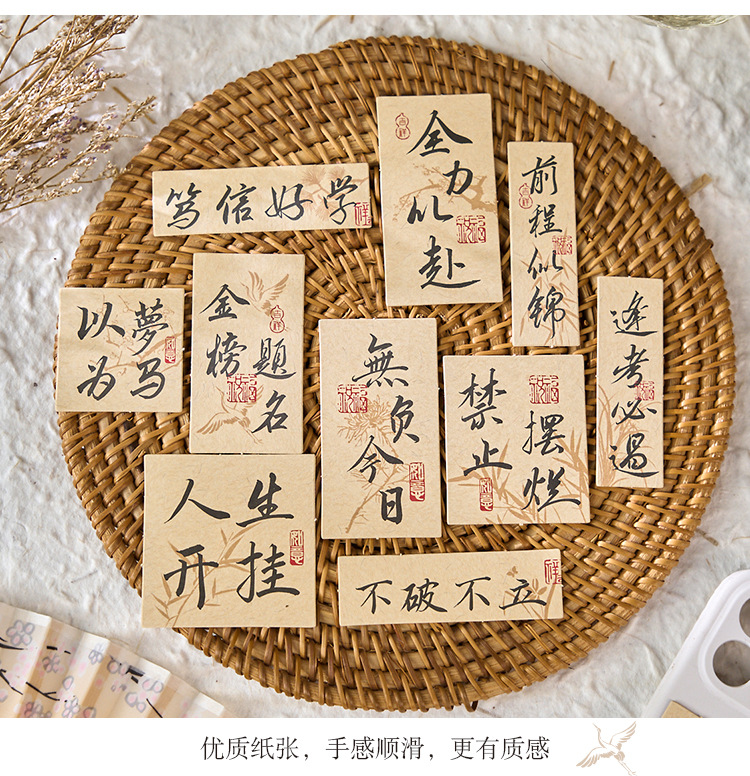 全力以赴
前程似锦
笃信好学
金榜
题名
以夢
为马
無负今日
禁止
摆烂
逢考必過
人生
开挂
不破不立
优质纸张，手感顺滑，更有质感